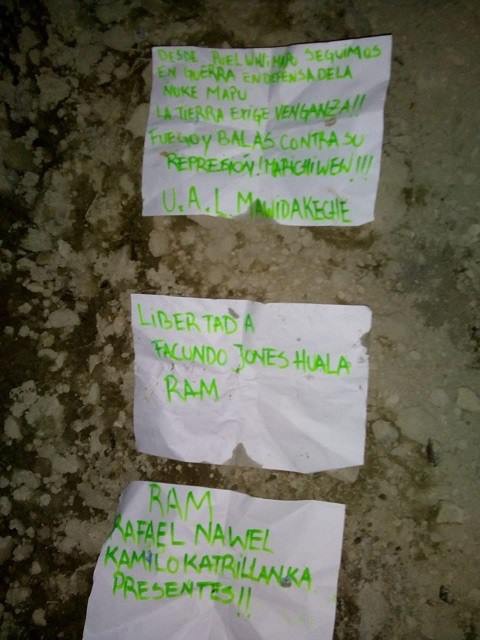 DESDE PUEL WILLI MAPU SEGUIMOS
EN GUERRA EN DEFENSA DE LA
ÑUKE MAPU
LA TIERRA EXIGE VENGANZA!!
FUEGO Y BALAS CONTRA SU
REPRESIÓN! MARICHIWEW!!!
U.A.L. MAWIDAKECHE
LIBERTAD A
FACUNDO JONES HUALA
RAM
RAM
RAFAEL NAWEL
KAMILO KATRILLANKA
PRESENTES!!